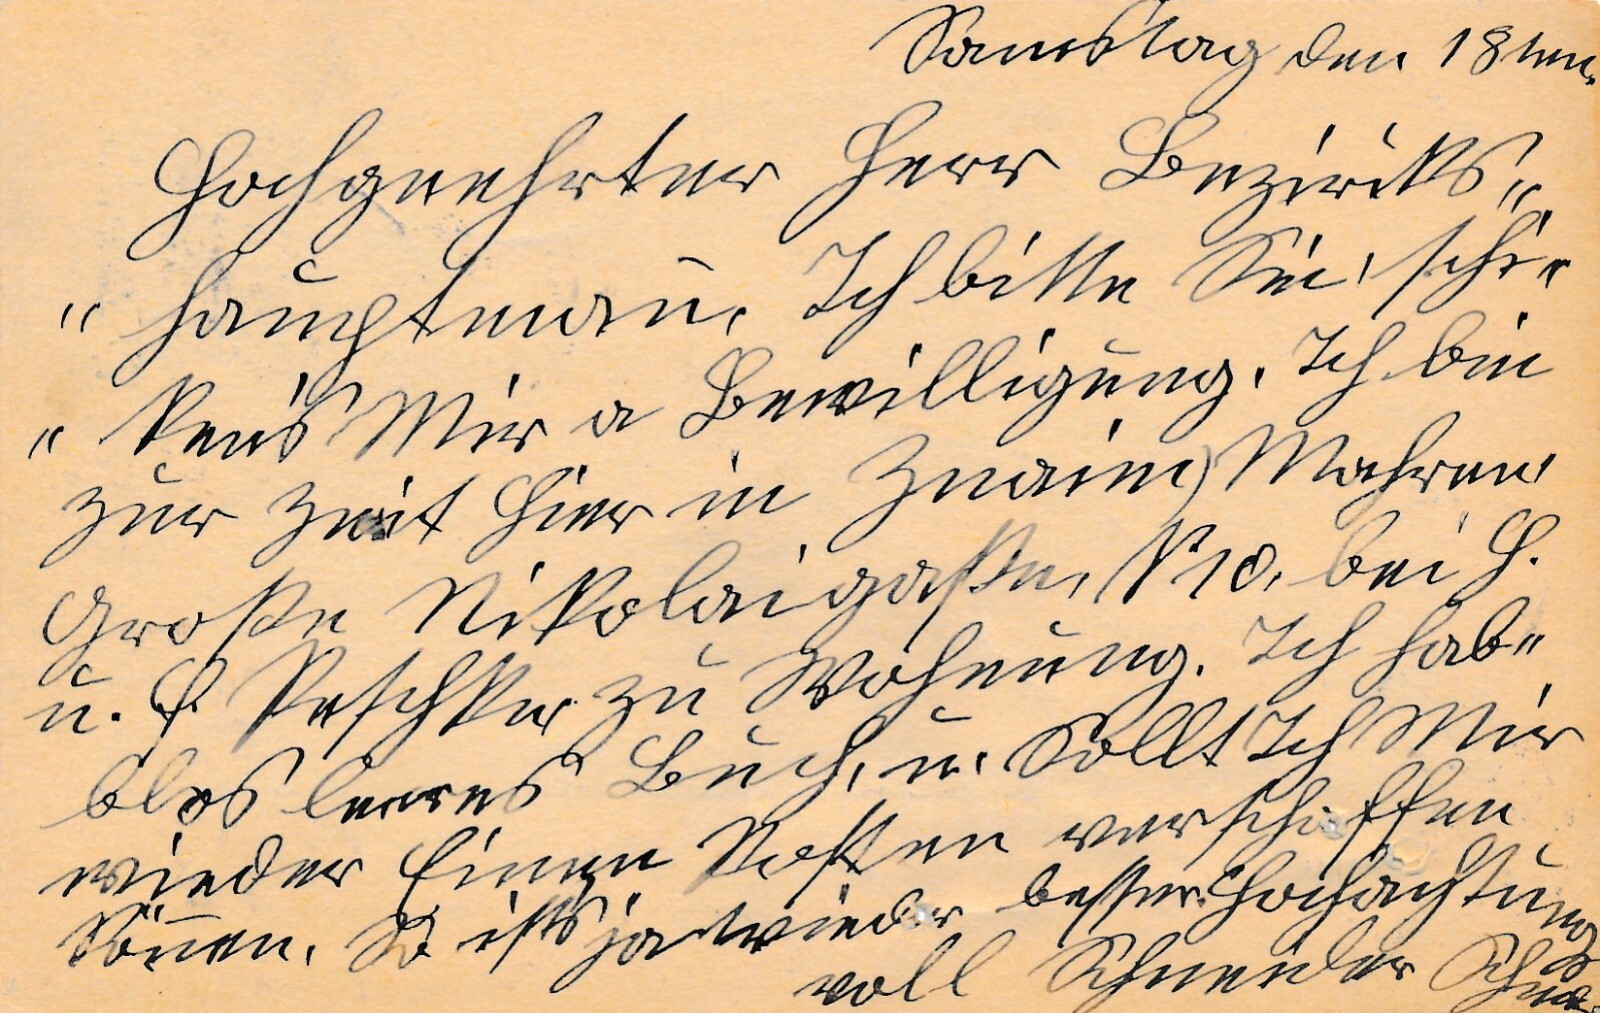 Samstag den 18ten.
Hochgeehrter Herr Bezirks„
„ hauptman̄. Ich bitte Sie, schi„
„ kens Mir a Bewilligung. Ich bin
zur Zeit hier in Znaim) Mahren
Große Nikolaigaße, N 10, bei H.
u. F. Peschke zu Wohnung. Ich hab„
blos leeres Buch, u. Sollt Ich Mir
wieder Einen Posten verschaffen
kön̄en. So ists ja wieder besser. Hochachtungs
voll Schneider